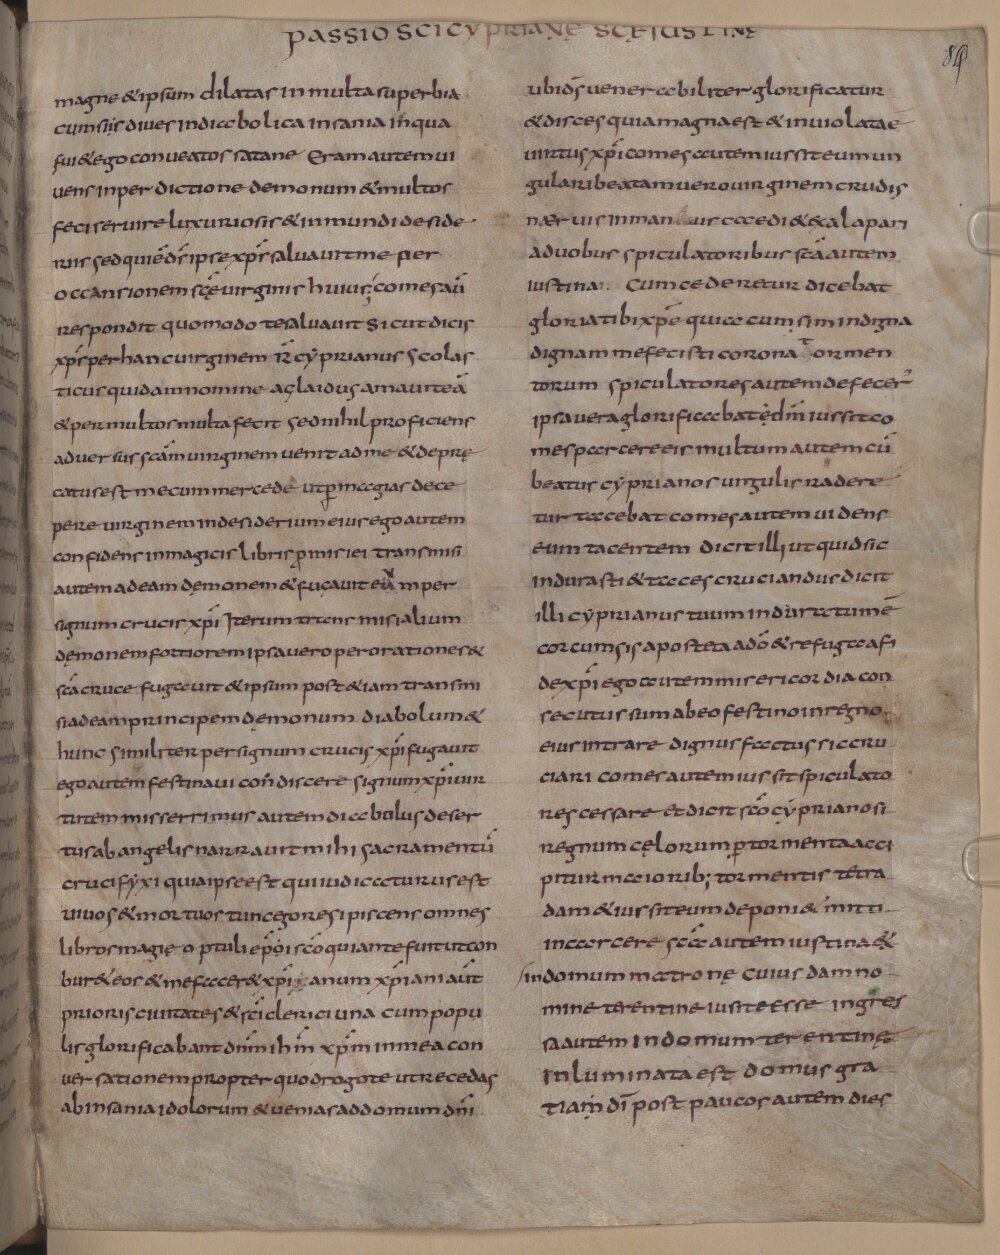 PASSIO SCI CYPRIANE SCE JUSTINE
84
magne & ipsum dilatas in multa superbia
cum sis dives in diabolica insania in qua
fui & ego conveatos satane Eram autem vi
vens in perdictione demonum & multos
feci servire luxuriosis & inmundi deside
riis sed qui ē dī ipse xp̄s salvavit me per
occansionem scę virginis huius; comes aū
respondit quomodo te salvavit sicut dicis
xp̄s per hanc virginem R̄ cyprianus scolas
ticus quidam nomine aglaidus amavit eā
& per multos multa fecit sed nihil proficiens
adversus scām virginem venit ad me & deprę
catus est me cum mercede ut p̱ magias dece
pere virginem in desiderium eius ego autem
confidens in magicis libris p̱misi ei transmisi
autem ad eam dęmonem & fucavit eum per
signum crucis xp̄i Iterum trans misi alium
dęmonem fortiorem ipsa vero per orationes &
scā cruce fugavit & ipsum post & iam transmi
si ad eam principem dęmonum diabolum &
hunc similiter per signum crucis xp̄i fugavit
ego autem festinavi con discere signum xp̄i vir
tutem misserrimus autem diabolus deser
tus ab angelis narravit mihi sacramentū
crucifyxi quia ipse est qui iudicaturus est
vivos & mortuos tunc ego resipiscens omnes
libros magię optuli ep̄o i scō qui ante fuit ut con
bur& eos & me facer& xp̄i anum xp̄iani aūt
prioris civitates & sc̄i clerici una cum popu
lis glorificabant dn̄m ih̄m xp̄m in mea con
versationem propter quod rogo te ut recedas
ab insania idolorum & venias ad domum dn̄i
ubi dō veneraabiliter glorificatur
& disces quia magna est & inviolatae
virtus xp̄i comes autem iussit eum un
gulari beatam vero virginem crudis
nærvis in man ibus caedi & exalapari
a duobus spiculatoribus scā autem
iustina Cum cederetur dicebat
gloria tibi xp̄e qui cum sim indigna
dignam me fecisti corona tormen
torum spiculatores autem defecer̄
ipsa vera glorificabat ędm̄ iussit co
mes parcere eis multum autem cū
beatus cyprianos ungulis radere
tur tacebat comes autem videns
eum tacentem dicit illi ut quid sic
indurasti & taces cruciandus dicit
illi cyprianus tuum induratum ē
cor cum sis apostata a dō & refuga a fi
de xp̄i ego autem misericordia con
secutus sum ab eo festino in regno
eius intrare dignus factus sic cru
ciari comes autem iussit spiculato
res cessare Et dicit scō cyprianos i
regnum cęlorum p̱ tormenta acci
pitur maiorib; tormentis te tra
dam & iussit eum deponi & mitti
in carcere scā autem iustina &
in domum matronę Cuius dam no
mine terentine iusit e Esse ingres
sa autem in domum terentinę
inluminata est domus gra
tiam dī post paucos autem dies